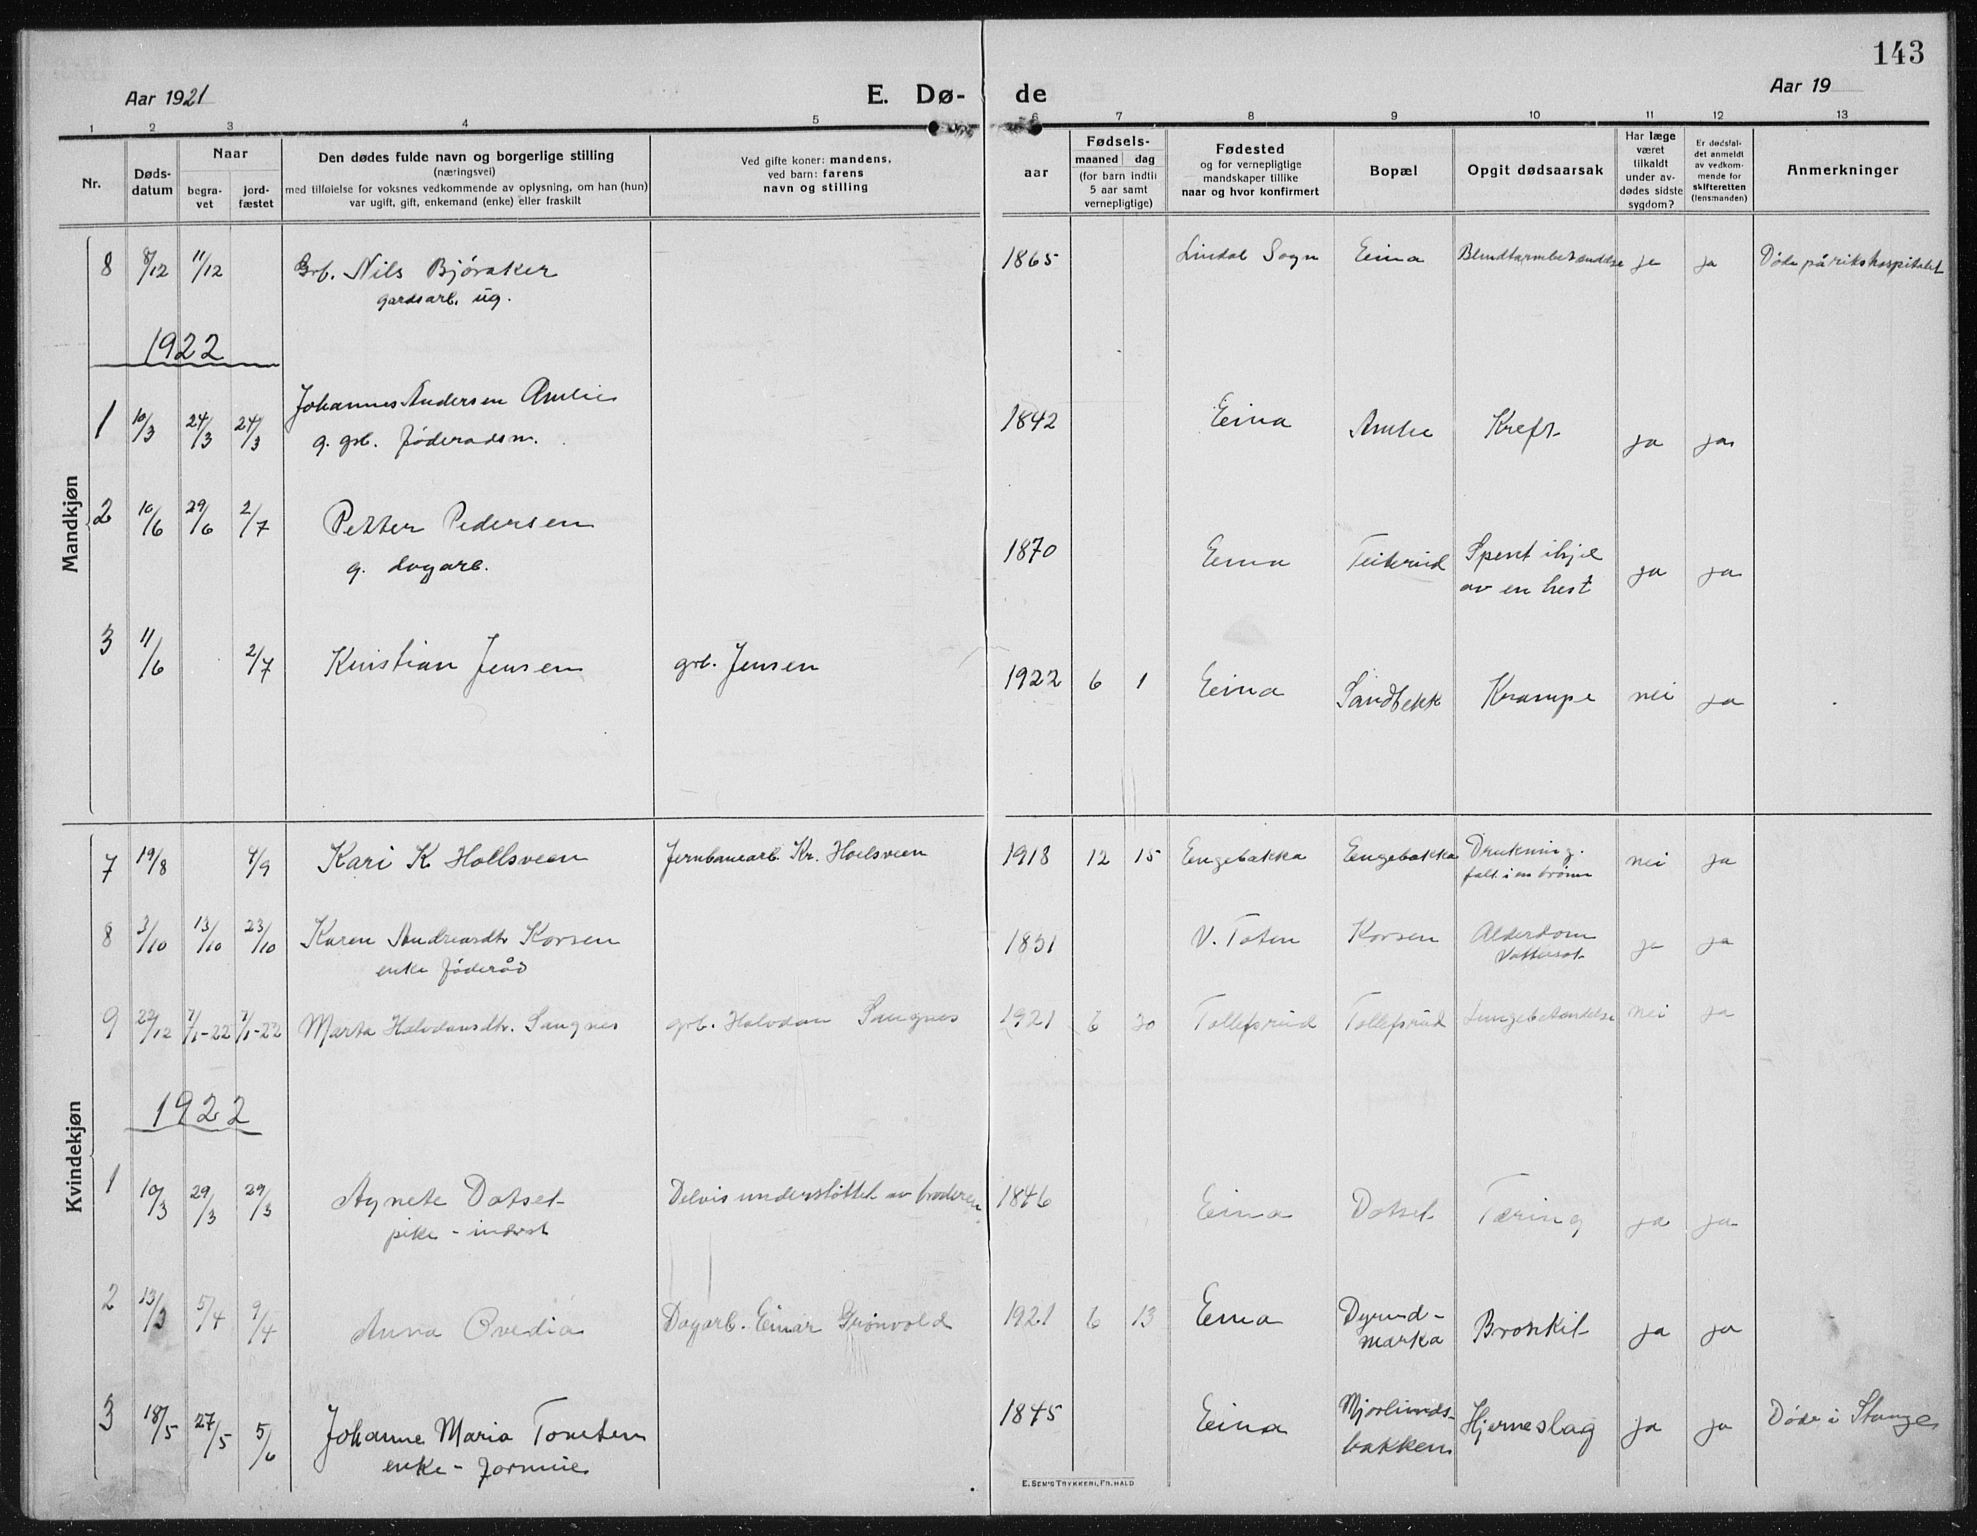 143
Aar 1921
E. Dø- de
Aar 19
1 2 3 4 5 6 7 8 9 10 11 12 13
Nr.
Døds-
datum
Naar
begra-
vet
jord-
fæstet
Den dødes fulde navn og borgerlige stilling
(næringsvei)
med tilføielse for voksnes vedkommende av oplysning, om han (hun)
var ugift, gift, enkemand (enke) eller fraskilt
Ved gifte koner: mandens,
ved barn: farens
navn og stilling
aar
Fødsels-
maaned dag
(for barn indtil
5 aar samt
vernepligtige)
Fødested
og for vernepligtige
mandskaper tillike
naar og hvor konfirmert
Bopæl
Opgit dødsaarsak
Har læge
været
tilkaldt
under av-
dødes sidste
sygdom?
Er dødsfal-
det anmeldt
av vedkom-
mende for
skifteretten
(lensmanden)
Anmerkninger
Mandkjøn
8 8/12 11/12 Grb. Nils Bjøraker 1865 Lindal Sogn Eina Blindtarmbetændelse ja ja Døde på rikshospitalet
gardsarb. ug.
1922
1 10/3 24/3 24/3 Johannes Andersen Amlie 1842 Eina Amlie Kreft ja ja
g. grb. føderadsm.
2 10/6 29/6 2/7 Petter Pedersen 1870 Eina Teiterud Spent ihjel ja ja
g. dagarb. av en hest
3 11/6 2/7 Kristian Jensen grb. Jensen 1922 6 1 Eina Sandbekk Krampe nei ja
Kvindekjøn
7 19/8 4/9 Kari K Hollsveen Jernbanearb. Kr. Hoelsveen 1918 12 15 Eengebakka Eengebakka Drukning. nei ja
falt i en brønn
8 3/10 13/10 23/10 Karen Andreasdtr Korsen 1831 V. Toten Korsen Alderdom ja ja
enke føderåd Vattersot
9 22/12 7/1-22 7/1-22 Marta Halvdansdtr. Sangnes grb. Halvdan Sangnes 1921 6 30 Tollefsrud Tollefsrud Lungebetændelse nei ja
1922
1 10/3 29/3 29/3 Agnete Dotset Delvis understøttet av broderen 1846 Eina Dotset Tæring ja ja
pike - inderst
2 13/3 5/4 9/4 Anna Ovedia Dagarb. Einar Grønvold 1921 6 13 Eina Dyrud- Bronkit ja ja
marka
3 18/5 27/5 5/6 Johanne Maria Tomten 1845 Eina Mjørlunds- Hjerneslag ja ja Døde i Stange
enke - bakken
E. SEM'S TRYKKERI, FR. HALD